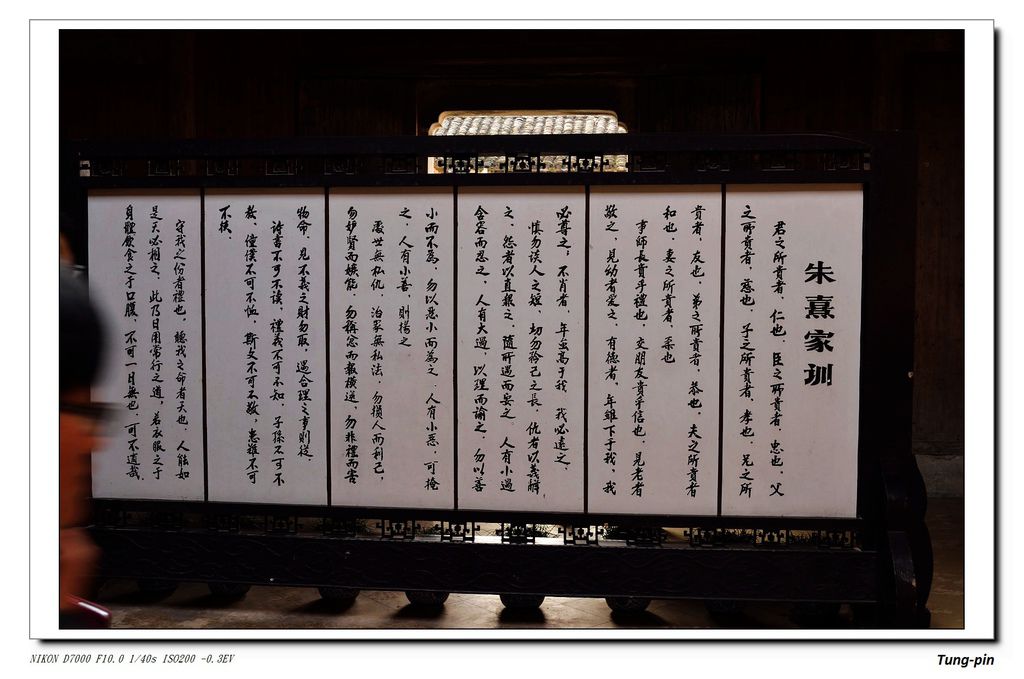 朱熹家训
君之所貴者，仁也。臣之所貴者，忠也。父
之所貴者，慈也。子之所貴者，孝也。兄之所
貴者，友也。弟之所貴者，恭也。夫之所貴者
和也。妻之所貴者，柔也
事師長貴乎禮也，交朋友貴乎信也。見老者
敬之，見幼者愛之。有德者，年雖下于我，我
必尊之；不肖者，年虽高于我，我必遠之。
慎勿谈人之短，切勿矜己之長。仇者以義解，
之，怨者以直報之，随所遇而安之。人有小過
含容而忍之，人有大過，以理而諭之。勿以善
小而不為，勿以惡小而為之。人有小惡，可掩
之，人有小善，則揚之
處世無私仇，治家無私法，勿損人而利己，
勿妒賢而嫉能。勿稱忿而報橫逆，勿非禮而害
物命。見不義之財勿取，遇合理之事則從。
诗書不可不读，禮義不可不知。子孫不可不
教，僮僕不可不恤，斯文不可不敬，患難不可
不扶。
守我之份者禮也，聽我之命者天也。人能如
是天必相之。此乃日用常行之道，若衣服之于
身體飲食之于口腹，不可一日無也，可不謹哉。
NIKON D7000 F10.0 1/40s ISO200 -0.3EV
Tung-pin